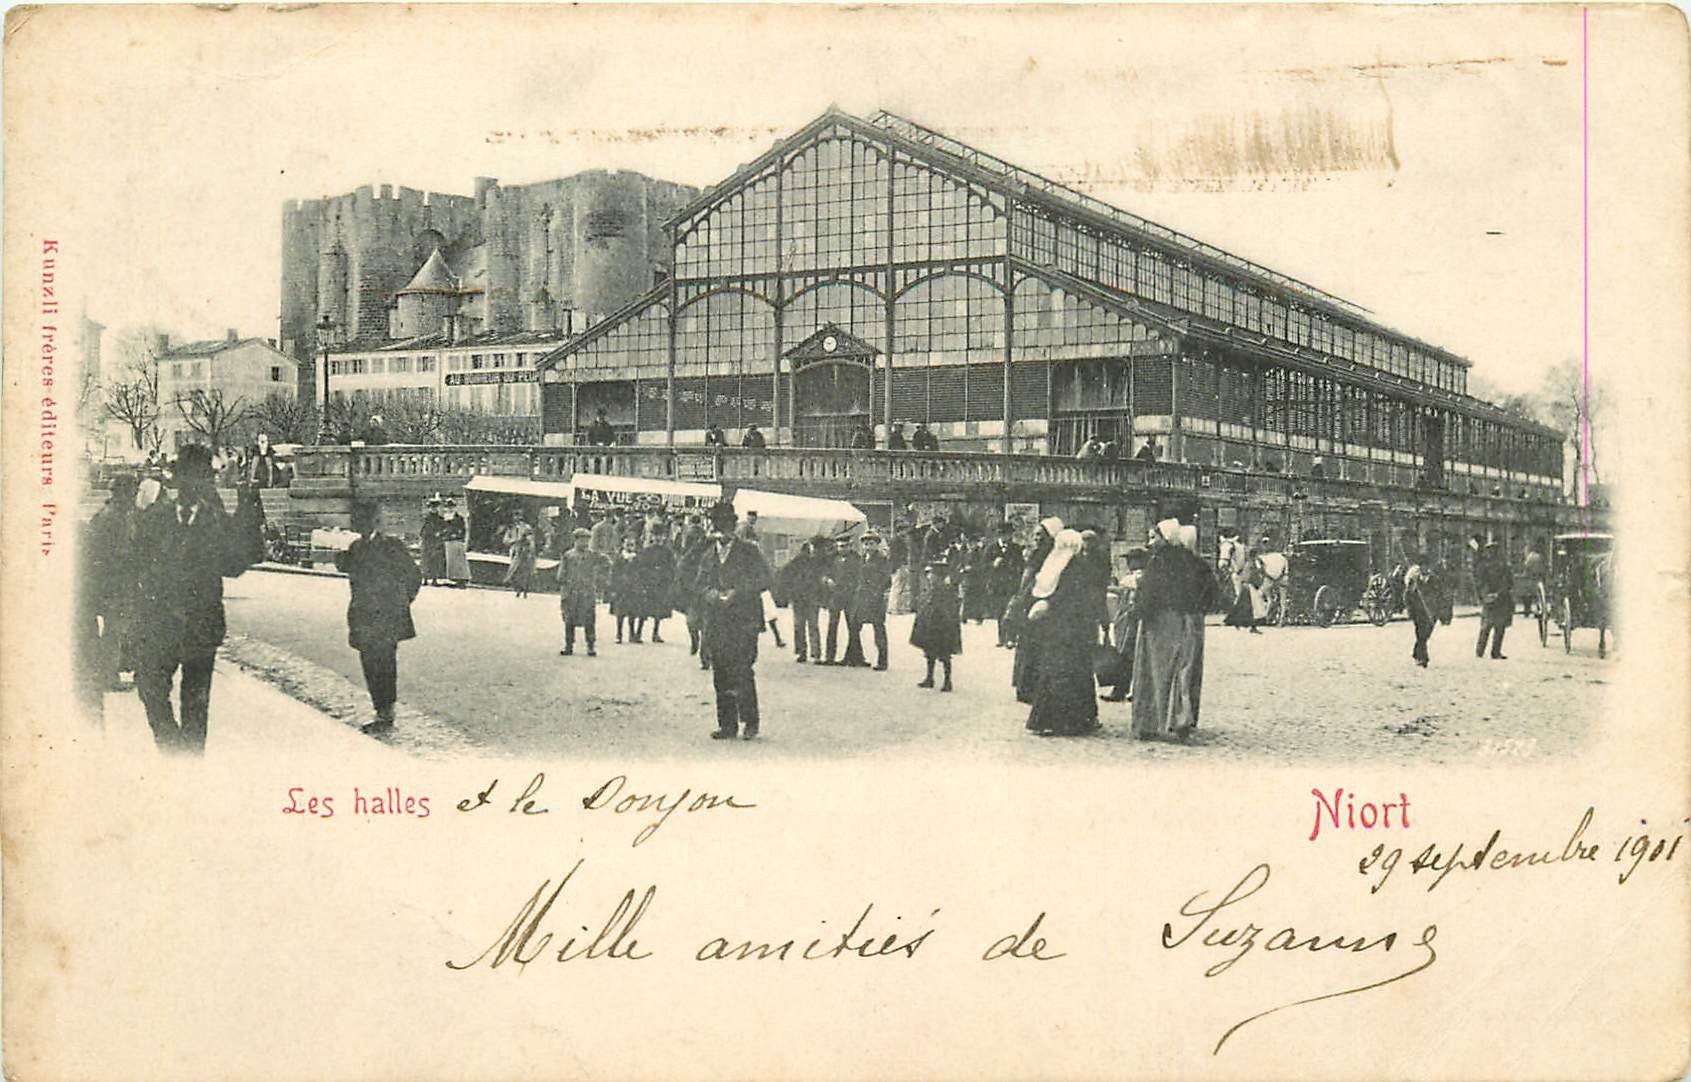 Kunzli frères éditeurs Paris
AU BONHEUR DU PEUPLE
LA VUE POUR TOUS
Les halles et le Donjon
Niort
29 septembre 1901
Mille amitiés de Suzanne